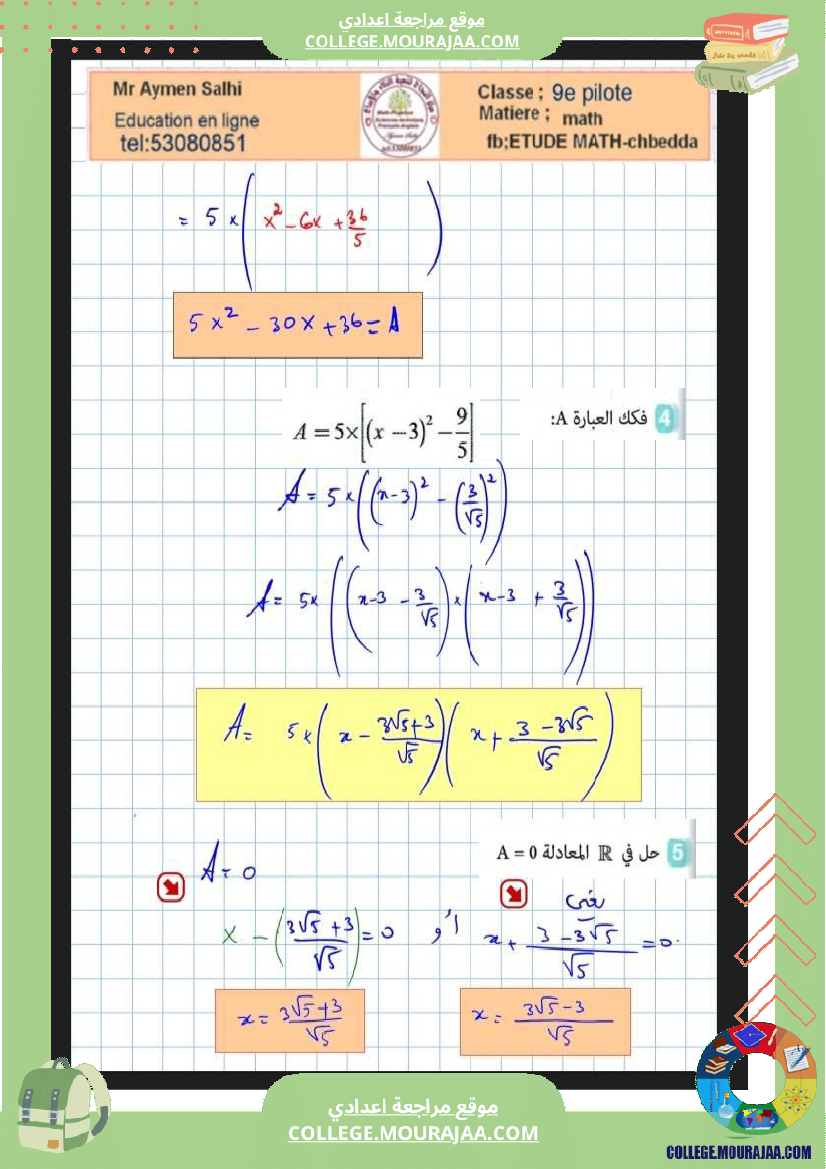 موقع مراجعة اعدادي
COLLEGE.MOURAJAA.COM
Mr Aymen Salhi
Education en ligne
tel:53080851
Classe ; 9e pilote
Matiere ; math
fb;ETUDE MATH-chbedda
= 5 × (x² - 6x + 36/5)
5x² - 30x + 36 = A
4 فكك العبارة A:
A = 5×[(x - 3)² - 9/5]
A = 5 × ((x-3)² - (3/√5)²)
A = 5× ((x-3 - 3/√5) × (x-3 + 3/√5))
A = 5× (x - (3√5+3)/√5) (x + (3 - 3√5)/√5)
5 حل في ℝ المعادلة A = 0
A = 0
يعني
x - ((3√5 + 3)/√5) = 0 أو x + (3 - 3√5)/√5 = 0
x = (3√5 + 3)/√5
x = (3√5 - 3)/√5
موقع مراجعة اعدادي
COLLEGE.MOURAJAA.COM
COLLEGE.MOURAJAA.COM